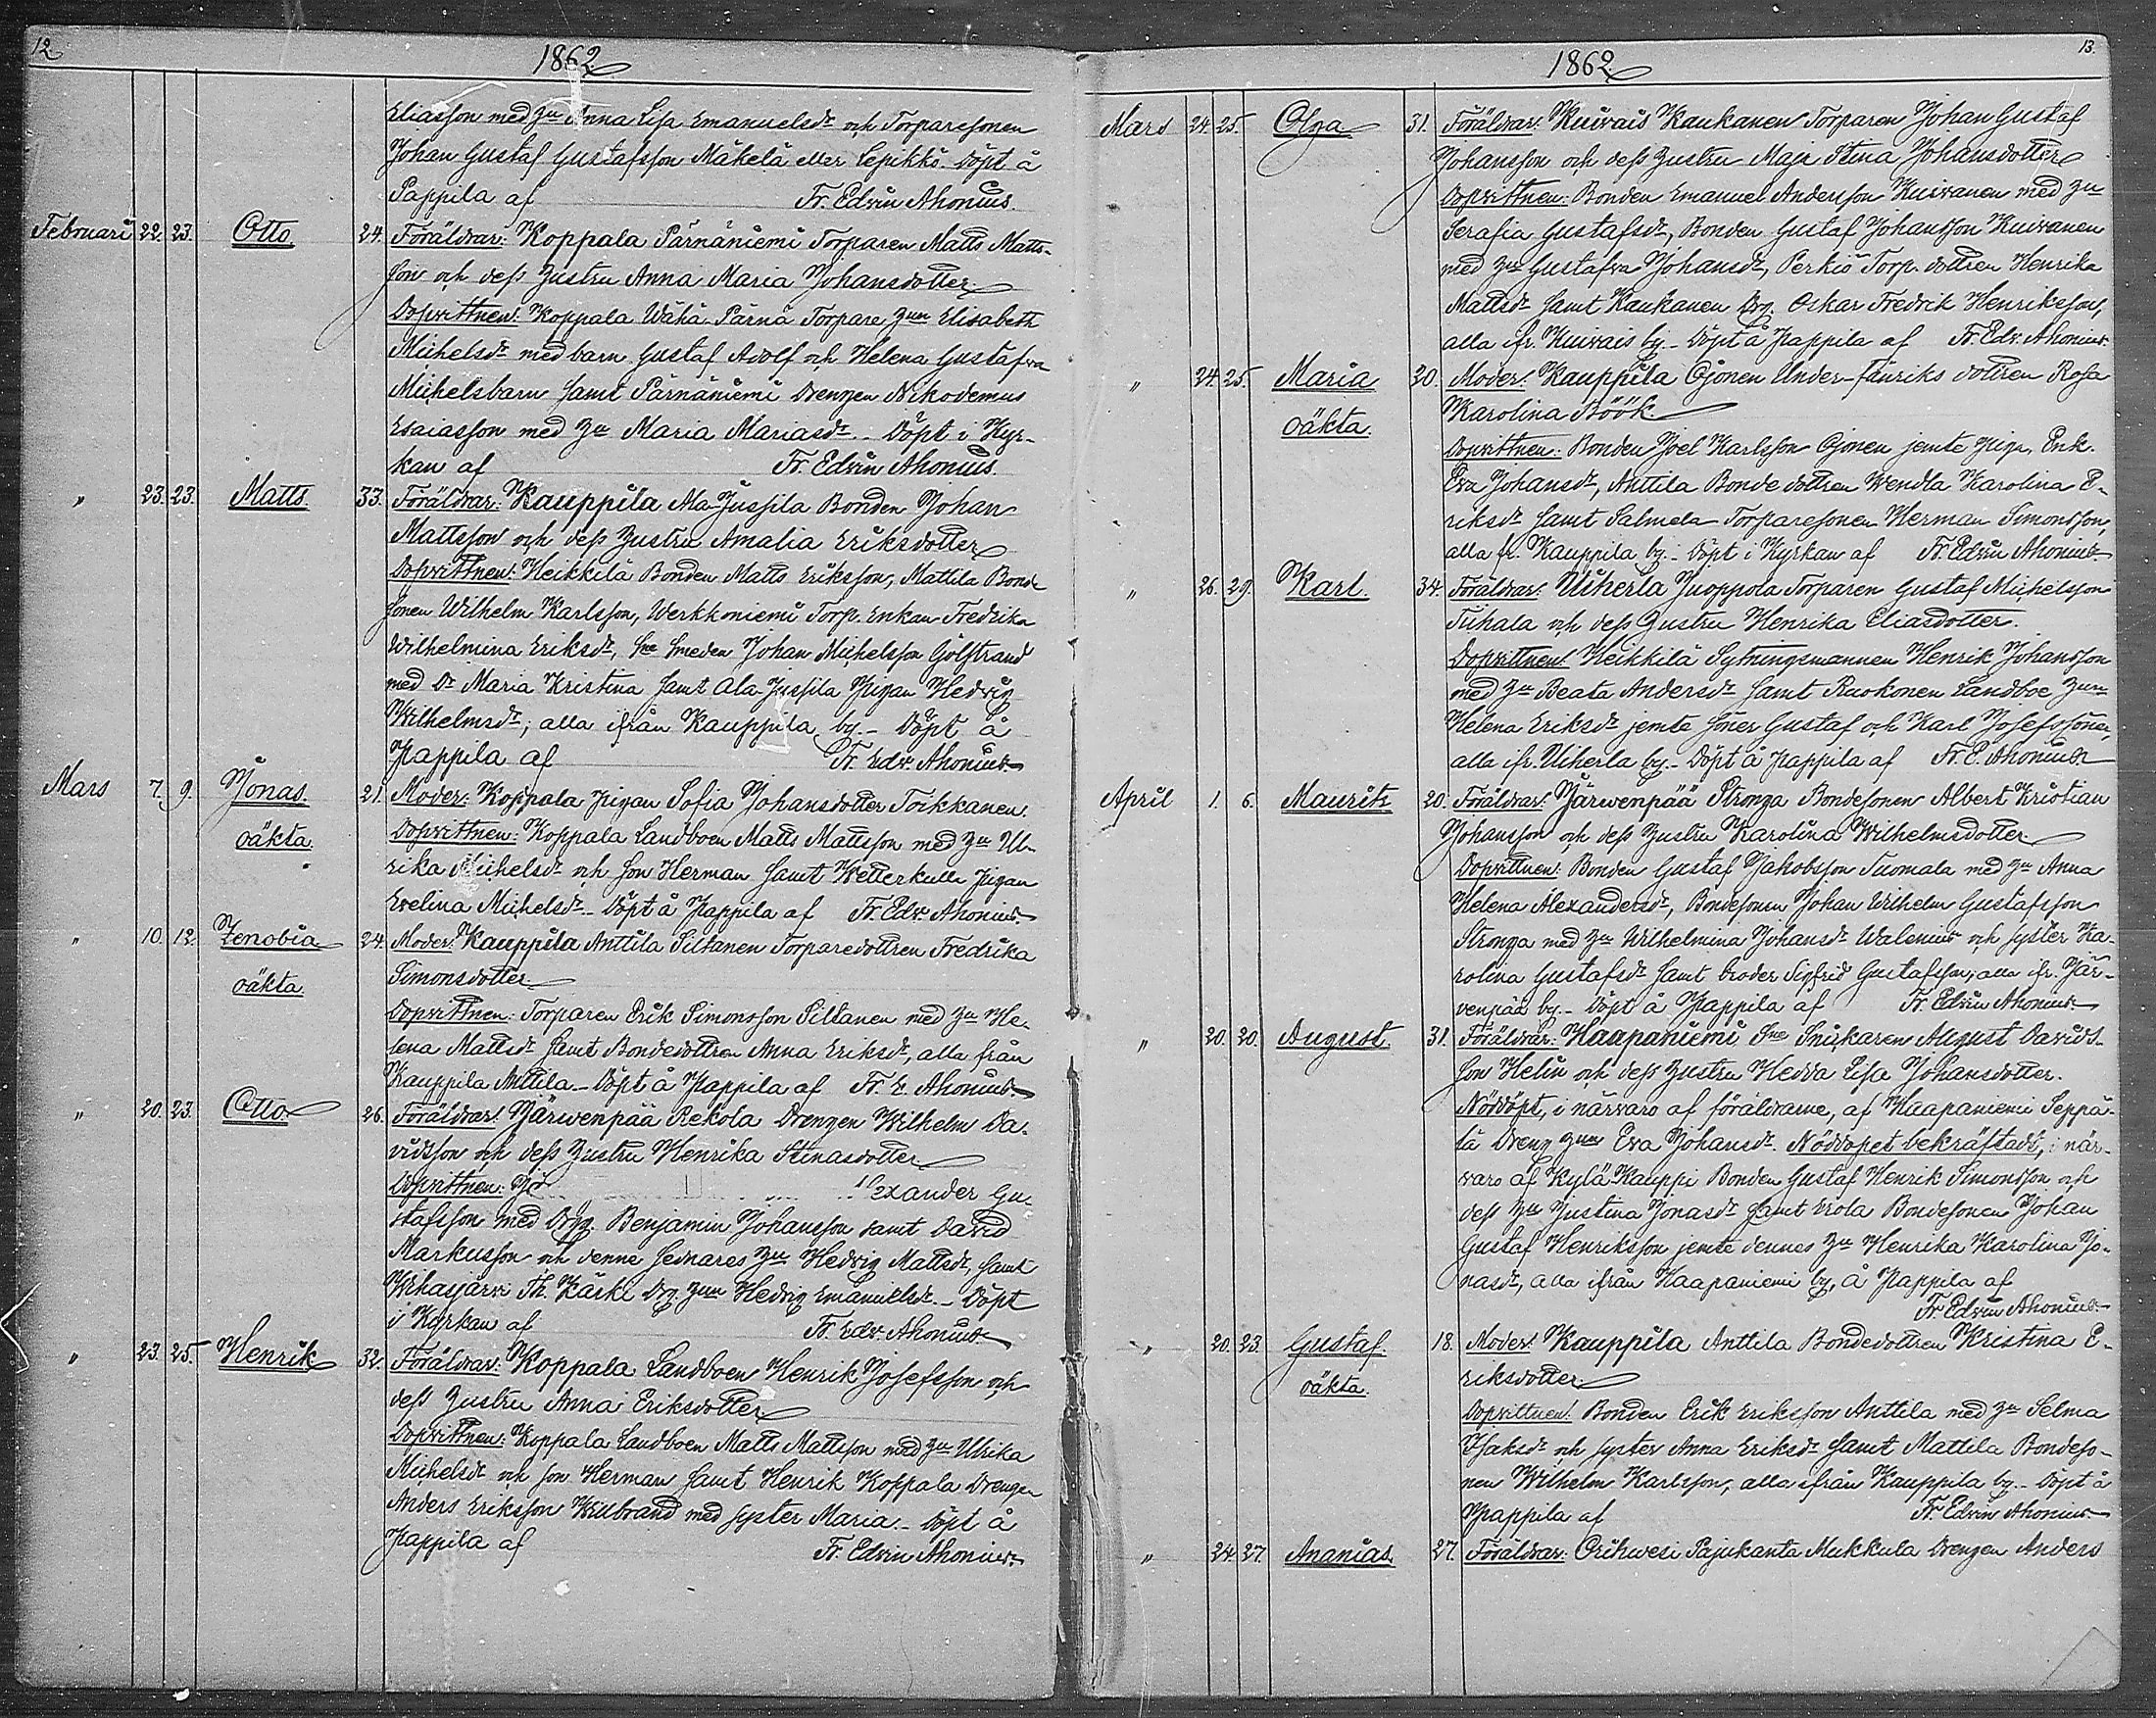 12.
1862.
Eliasson med Hu Anna Lisa Emanuelsdr och Torparesonen
Johan Gustaf Gustafsson Mäkelä eller Lepikkö. Döpt å
Pappila af Fr. Edvin Ahonius.
Februari 22. 23. Otto. 24. Föräldrar: Koppala Pärnäniemi Torparen Matts Matts-
son och dess Hustru Anna Maria Johansdotter.
Dopvittnen: Koppala Wähä-Pärnä Torpare Hun Elisabeth
Michelsdr med barn Gustaf Adolf och Helena Gustafva
Michelsbarn samt Pärnäniemi Drengen Nikodemus
Esaiasson med Hu Maria Mariasdr. Döpt i Kyr-
kan af Fr. Edvin Ahonius.
" 23. 23. Matts. 33. Föräldrar: Kauppila Ala-Jussila Bonden Johan
Mattsson och dess Hustru Amalia Eriksdotter
Dopvittnen: Heikkilä Bonden Matts Eriksson, Mattila Bonde
sonen Wilhelm Karlsson, Werkkoniemi Torp. Enkan Fredrika
Wilhelmina Eriksdr, Sne Smeden Johan Michelsson Golfstrand
med Dr Maria Kristina samt Ala-Jussila Pigan Hedvig
Wilhelmsdr; alla ifrån Kauppila by. - Döpt å
Pappila af Fr. Edv. Ahonius.
Mars 7. 9. Jonas. 21. Moder: Koppala Pigan Sofia Johansdotter Torkkanen.
oäkta. Dopvittnen: Koppala Landboen Matts Mattsson med Hu Ul-
rika Michelsdr och son Herman samt Wetterkulla Pigan
Evelina Michelsdr. - Döpt å Pappila af Fr. Edv. Ahonius.
" 10. 12. Zenobia 24. Moder: Kauppila Anttila Siltanen Torparedottren Fredrika
oäkta. Simonsdotter
Dopvittnen: Torparen Erik Simonsson Siltanen med Hu He-
lena Mattsdr samt Bondedottren Anna Eriksdr, alla från
Kauppila Anttila. - Döpt å Pappila af Fr. E. Ahonius.
" 20. 23. Otto. 26. Föräldrar: Järwenpää Rekola Drengen Wilhelm Da-
vidsson och dess Hustru Henrika Stinasdotter
Dopvittnen: lexander Gu-
stafsson med Drg. Benjamin Johansson samt David
Markusson och denne sednares Hu Hedvig Mattsdr, samt
Wihasjärvi Th. Käski Drg. Hun Hedvig Emanuelsdr. - Döpt
i Kyrkan af Fr. Edv. Ahonius.
" 23. 25. Henrik 32. Föräldrar: Koppala Landboen Henrik Josefsson och
dess Hustru Anna Eriksdotter
Dopvittnen: Koppala Landboen Matts Mattsson med Hu Ulrika
Michelsdr och son Herman samt Henrik Koppala Drengen
Anders Eriksson Willbrand med syster Maria. - Döpt å
Pappila af Fr. Edvin Ahonius.
13.
1862.
Mars 24. 25. Olga 31. Föräldrar: Kuivais Kaukanen Torparen Johan Gustaf
Johansson och dess Hustru Maja Stina Johansdotter
Dopvittnen: Bonden Emanuel Andersson Kuivanen med Hu
Serafia Gustafsdr, Bonden Gustaf Johansson Kuivanen
med Hu Gustafva Johansdr, Perkiö Torp. dottren Henrika
Mattsdr samt Kaukanen Drg. Oskar Fredrik Henriksson,
alla ifr. Kuivais by. - Döpt å Pappila af Fr. Edv. Ahonius.
" 24. 25. Maria 20. Moder: Kauppila Ojonen Under-fänriks dottren Rosa
oäkta. Karolina Böök.
Dopvittnen: Bonden Joel Karlsson Ojonen jemte Piga, Enk.
Eva Johansdr, Anttila Bonde dottren Wendla Karolina E-
riksdr samt Salmela Torparesonen Herman Simonsson,
alla fr. Kauppila by. - Döpt i Kyrkan af Fr. Edvin Ahonius.
" 26. 29. Karl. 34. Föräldrar: Uiherla Juoppola Torparen Gustaf Michelsson
Tuhala och dess Hustru Henrika Eliasdotter.
Dopvittnen: Heikkilä Sytningsmannen Henrik Johansson
med Hu Beata Andersdr samt Ruokonen Landboe Hun
Helena Eriksdr jemte söner Gustaf och Karl Josefssöner,
alla ifr. Uiherla by. - Döpt å Pappila af Fr. E. Ahonius.
April 1. 6. Mauritz 20. Föräldrar: Järwenpää Stronga Bondesonen Albert Kristian
Johansson och dess Hustru Karolina Wilhelmsdotter
Dopvittnen: Bonden Gustaf Jakobsson Tuomala med Hu Anna
Helena Alexandersdr, Bondesonen Johan Wilhelm Gustafsson
Stronga med Hu Wilhelmina Johansdr Walenius och syster Ka-
rolina Gustafsdr samt broder Sigfrid Gustafsson; alla ifr. Jär-
venpää by. - Döpt å Pappila af Fr. Edvin Ahonius.
" 20. 20. August. 31. Föräldrar: Haapaniemi Sne Snickaren August Davids-
son Helin och dess Hustru Hedda Lisa Johansdotter.
Nöddöpt, i närvaro af föräldrarne, af Haapaniemi Seppä-
lä Dreng Hun Eva Johansdr. Nöddopet bekräftadt, i när-
varo af Kylä-Kauppi Bonden Gustaf Henrik Simonsson och
dess Hu Justina Jonasdr samt Erola Bondesonen Johan
Gustaf Henriksson jemte dennes Hu Henrika Karolina Jo-
nasdr, alla ifrån Haapaniemi by, å Pappila af
Fr. Edvin Ahonius.
" 20. 23. Gustaf. 18. Moder: Kauppila Anttila Bondedottren Kristina E-
oäkta. riksdotter.
Dopvittnen: Bonden Erik Eriksson Anttila med Hu Selma
Isaksdr och syster Anna Eriksdr samt Mattila Bondeso-
nen Wilhelm Karlsson, alla ifrån Kauppila by. - Döpt å
Pappila af Fr. Edvin Ahonius.
" 24. 27. Ananias. 27. Föräldrar: Orihwesi Pajukanta Mukkula Drengen Anders